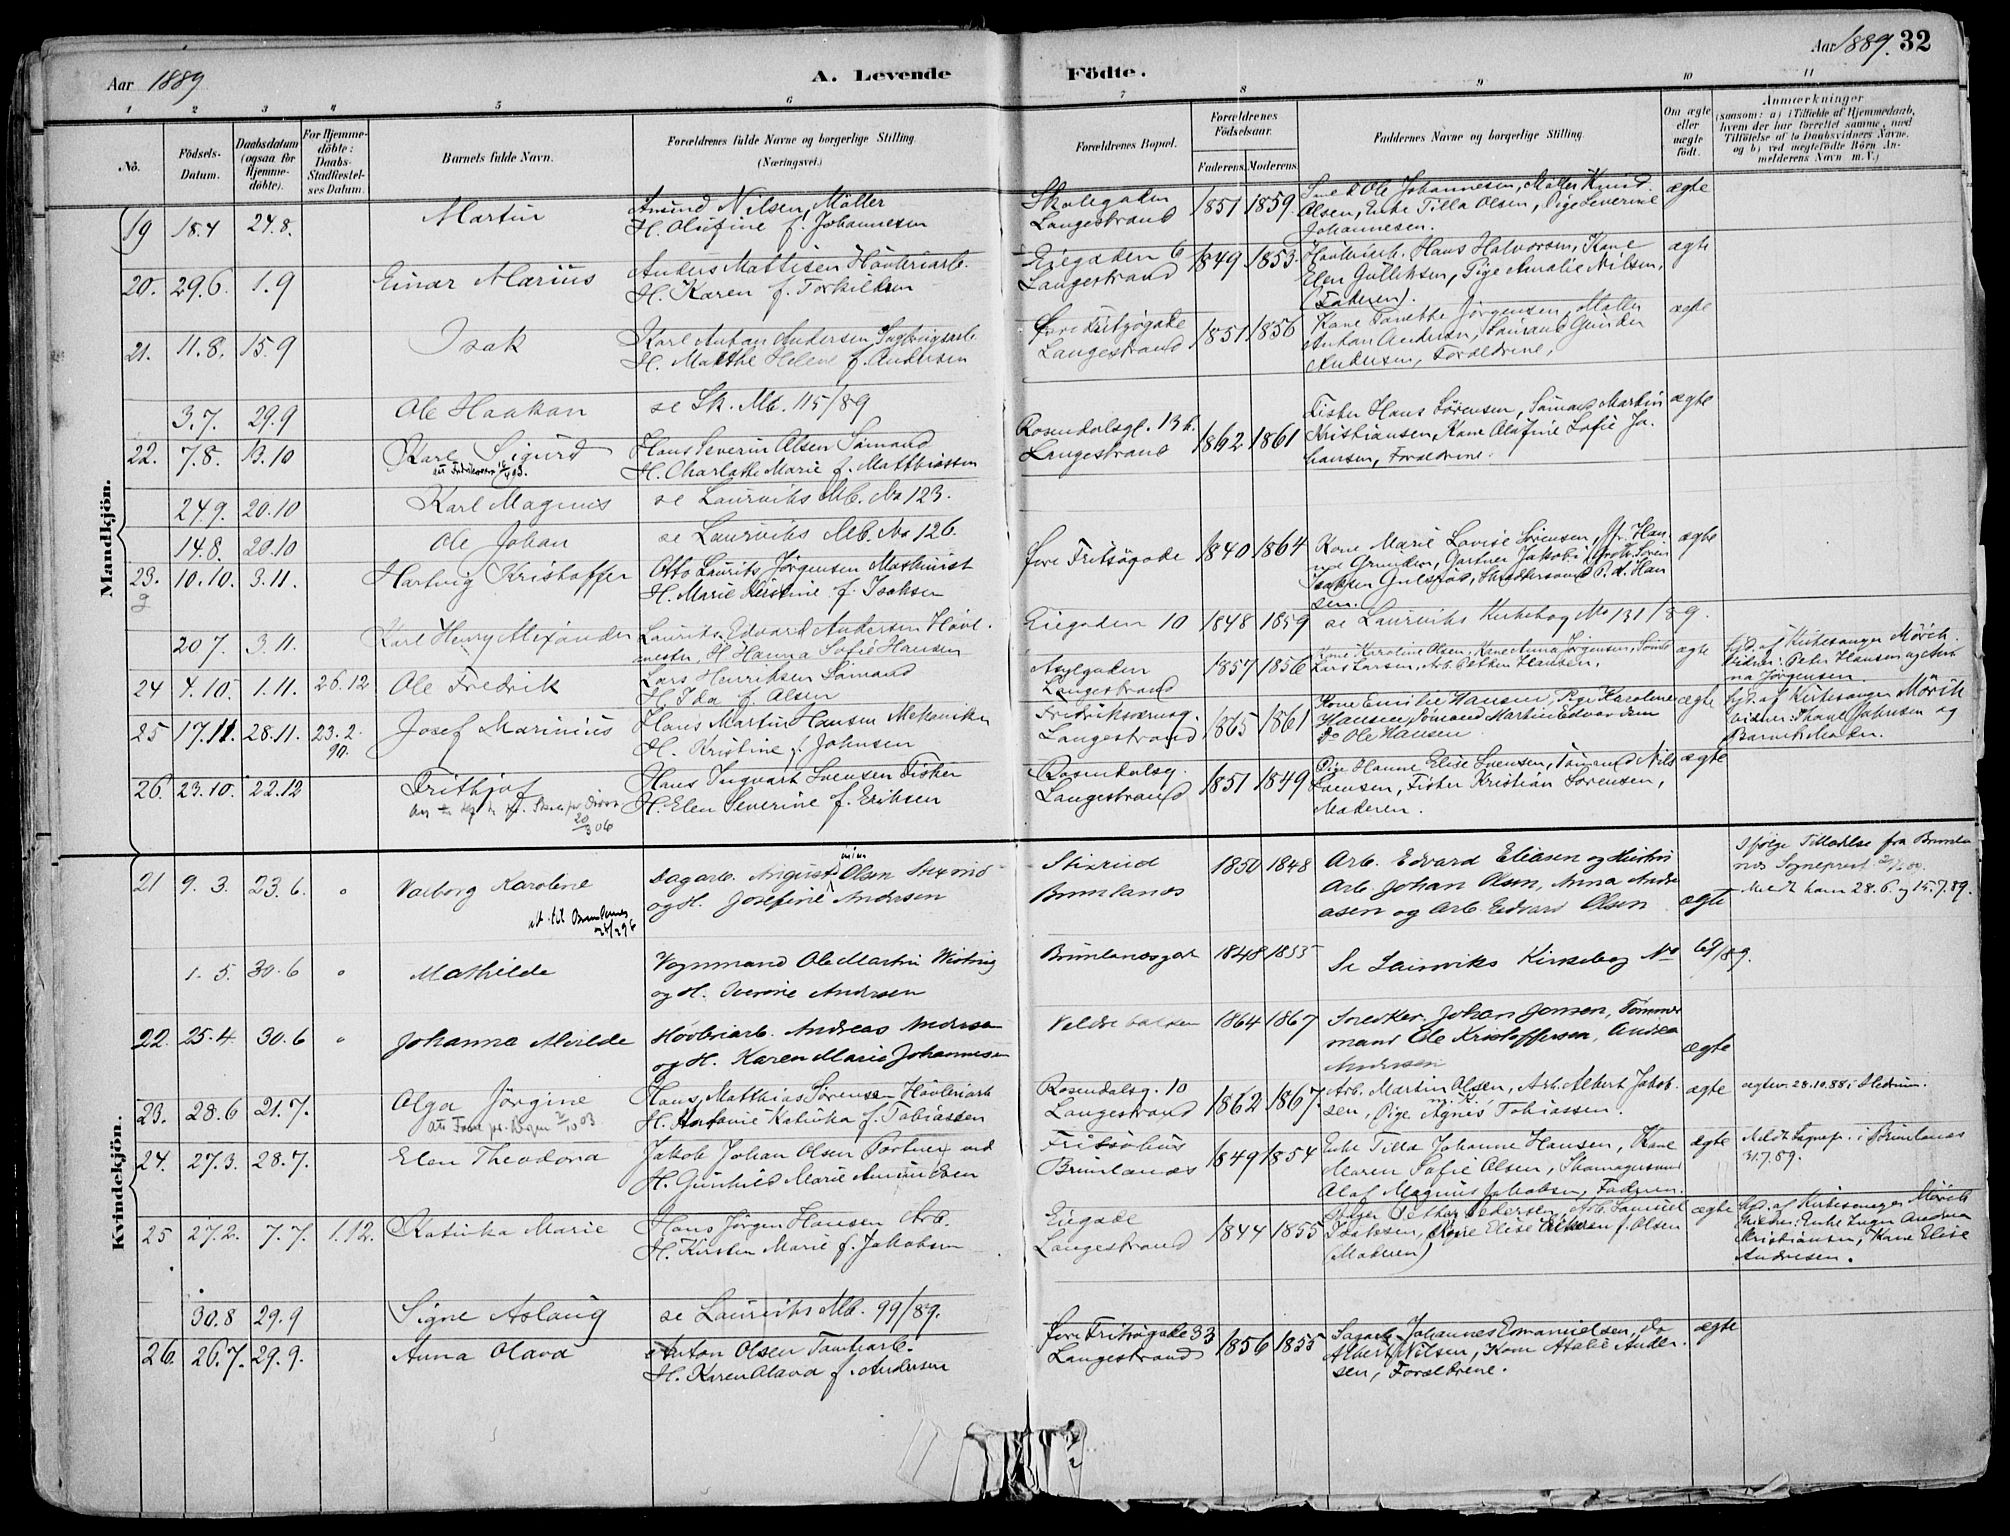 Aar 1889
A. Levende Födte.
Aar 1889. 32
1 2 3 4 5 6 7 8 9 10 11
No.
Födsels-Datum.
Daabsdatum (ogsaa for Hjemmedöbte).
For Hjemmedöbte: Daabs-Stadfæstelses Datum.
Barnets fulde Navn.
Forældrenes fulde Navne og borgerlige Stilling. (Næringsvei.)
Forældrenes Bopæl.
Forældrenes Födselsaar.
Faderens. Moderens.
Faddernes Navne og borgerlige Stilling.
Om ægte eller uægte födt.
Anmærkninger
(saasom: a) i Tilfælde af Hjemmedaab, hvem der har forrettet samme, med Tilföielse af to Daabsvidners Navne, og b) ved uægtefödte Börn Anmelderens Navn m. V.)
Mandkjön.
19 18.4 24.8. Martin
Amund Nilsen, Møller
H. Olufine f. Johannesen
Skolegaden
Langestrand
1851 1859
Olsen, Enke Tilla Olsen, Pige Severine
Johannesen.
ægte
20. 29.6. 1.9 Einar Marius
Anders Mattisen Høvleriarb.
H. Karen f. Torkildsen
Eiegaden 6
Langestrand
1849 1853
Høvleriarb. Hans Halvorsen, Kone
Elen Gulliksen, Pige Amalie Nilsen,
(Faderen).
ægte
21. 11.8. 15.9 Isak
Karl Anton Andersen Sagbrugsarb.
H. Mathe Helene f. Andersen
Øvre Fritzøgade
Langestrand
1851 1856
Kone Tanette Jørgensen, Møller
Anton Andersen, Sømand Gunder
Andersen, Forældrene.
ægte
3.7. 29.9 Ole Haakon
se Sk. Mb. 115/89
22. 7.8. 13.10 Karl Sigurd
Hans Severin Olsen Sømand
H. Charlotte Marie f. Matthiassen
Rosendalsgt. 13 b.
Langestrand
1862 1861
Fisker Hans Sørensen, Sømand Martin
Kristiansen, Kone Olufine Sofie Jo-
hansen, Forældrene.
ægte
24.9. 20.10 Karl Magnus
se Laurviks Mb. No 123.
14.8. 20.10 Ole Johan
se Laurviks Mb. No 126.
23. 10.10. 3.11. Hartvig Kristoffer
Otto Laurits Jørgensen Maskinist
H. Marie Kirstine f. Isaksen
Øvre Fritsøgade
1840 1864
Kone Marie Lovise Sørensen, Jfr. Han-
Isaksen Gulsjøs, Skreddersvend P. d. Han
sen.
ægte
20 7. 3.11. Karl Henry Alexander
Laurits Edvard Andersen Høvl-
mester, H. Hanna Sofie Hansen
Eiegaden 10
1848 1859
se Laurviks Kirkebog No 131/89.
24 4.10. 1.11. 26.12 Ole Fredrik
Lars Henriksen Sømand
H. Ida f. Olsen
Asylgaden
Langestrand
1857 1856
Kone Karoline Olsen, Kone Anna Jørgensen, Sømd.
Lars Larsen, Arb. Petter Hansen.
ægte
hjd. af Kirkesanger Mørch
vidner: Peter Hansen og An-
na Jørgensen.
25 17.11. 28.11. 23.2. 90. Josef Marinius
Hans Martin Hansen Mekaniker
H. Kristine f. Johnsen
Fredriksværnsg.
Langestrand
1865 1861
Kone Emilie Hansen, Pige Karoline
Hansen, Sømand Martin Edvardsen
Do Ole Hansen
ægte
hjd. af Kirkesanger Mørch
vidner: Thone Johnsen og
Barnets Moder.
26. 23.10. 22.12 Frithjof
Hans Ingvart Svensen Fisker
H. Elen Severine f. Eriksen
Rosendalsg.
Langestrand
1851 1849
Pige Hanne Elise Svensen, Sømand Nils
Svensen, Fisker Kristian Sørensen,
Moderen.
ægte
Kvindekjön.
21 9.3. 23.6. " Valborg Karoline
at. til Brunlanes
Dagarb. August Olsen
og H. Josefine Andersen
Stixrud
Brunlanæs
1850 1848
Arb. Edvard Eliasen og Hustru
Arb. Johan Olsen, Anna Andre
asen og Arb. Edvard Olsen
ægte
Ifølge Tilladelse fra Brunla
næs Sogneprest
Meldt ham 28.6. og 15.7.89.
1.5. 30.6 " Mathilde
Vognmand Ole Martin
og H. Iverine Andersen
Brunlanesgt
1848 1855
Se Laurviks Kirkebog No 69/89.
22. 25.4. 30.6 " Johanna Alvilde
Høvleriarb. Andreas Andersen
og H. Karen Marie Johannesen
Veldre bakken
1864 1867
Snedker. Johan Jonsen, Tømmer
mand Ole Kristoffersen, Andrea
Andersen
ægte
23. 28.6 21.7. Olga Jörgine
Hans Matthias Sørensen Høvleriarb
H. Antonie Katinka f. Tobiassen
Rosendalsg. 10
Langestrand
1862 1867
Arb. Martin Olsen, Arb. Albert Jakob-
sen, Pige Agnes Tobiassen.
ægte
ægtev. 28.10.88 i Hedrum.
24. 27.3. 28.7. Elen Theodora
Jakob Johan Olsen Portner ved
H. Gunhild Marie
Fritsøhus
Brunlanæs
1849 1854
Enke Tilla Johanne Hansen, Kone
Maren Sofie Olsen, Skomagersvend
Olaf Magnus Jakobsen, Faderen
ægte
Meldt Sognepr. i Brunlanæs
31.7.89.
25 27.2. 7.7. 1.12. Katinka Marie
Hans Jørgen Hansen Arb.
H. Kirsten Marie f. Jakobsen
Eiegade
Langestrand
1844 1855
Petter Pedersen, Arb. Samuel
Isaksen, Kone Elise f. Olsen
(Moderen)
ægte
hjd. af Kirkesanger Mørch
vidner: Enke Inger Andrea
Kristiansen, Kone Elise
Andresen.
30.8 29.9 Signe Aslaug
se Laurviks Mb. 99/89.
26. 26.7. 29.9. Anna Olava
Anton Olsen Tomtearb.
H. Karen Olava f. Andersen
Øvre Fritsøgade 33
Langestrand
1856 1855
Sagarb. Johannes Emanuelsen, do
Albert Nilsen, Kone Atalie Ander-
sen, Forældrene.
ægte